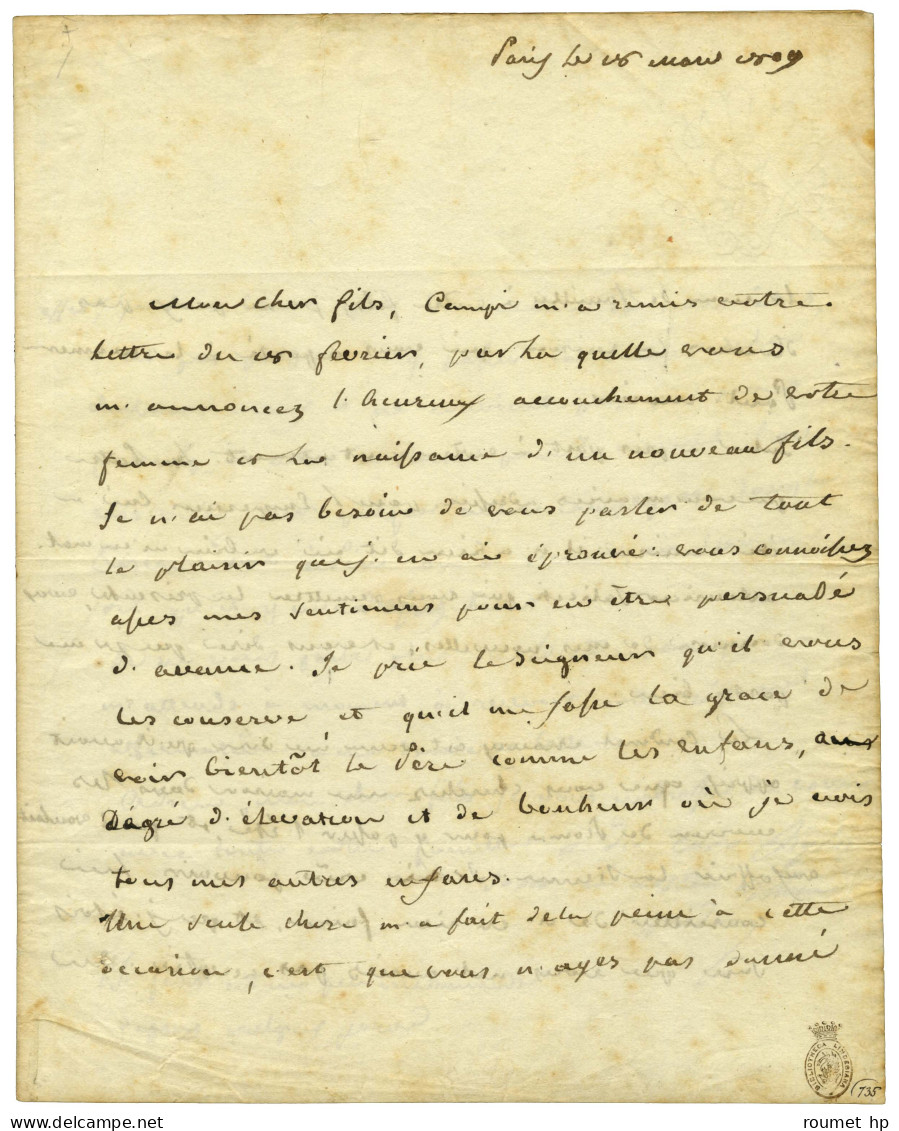 Paris le 16 Mars 1809
Mon cher fils, Campi m'a remis votre
lettre du 16 fevrier, par la quelle vous
m'annoncez l'heureux accouchement de votre
femme et la naissance d'un nouveau fils.
Je n'ai pas besoin de vous parler de tout
le plaisir que j'en ai éprouvé: vous connoissez
assez mes sentimens pour en être persuadé
d'avance. Je prie le Seigneur qu'il vous
les conserve et qu'il me fasse la grace de
voir bientôt le Père comme les enfans, au
Dégré d'élevation et de bonheur où je vois
tous mes autres enfans.
Une seule chose m'a fait de la peine à cette
occasion, c'est que vous n'ayez pas donné
BIBLIOTHECA LINDESIANA
735
roumet hp
DELCAMPE.NET